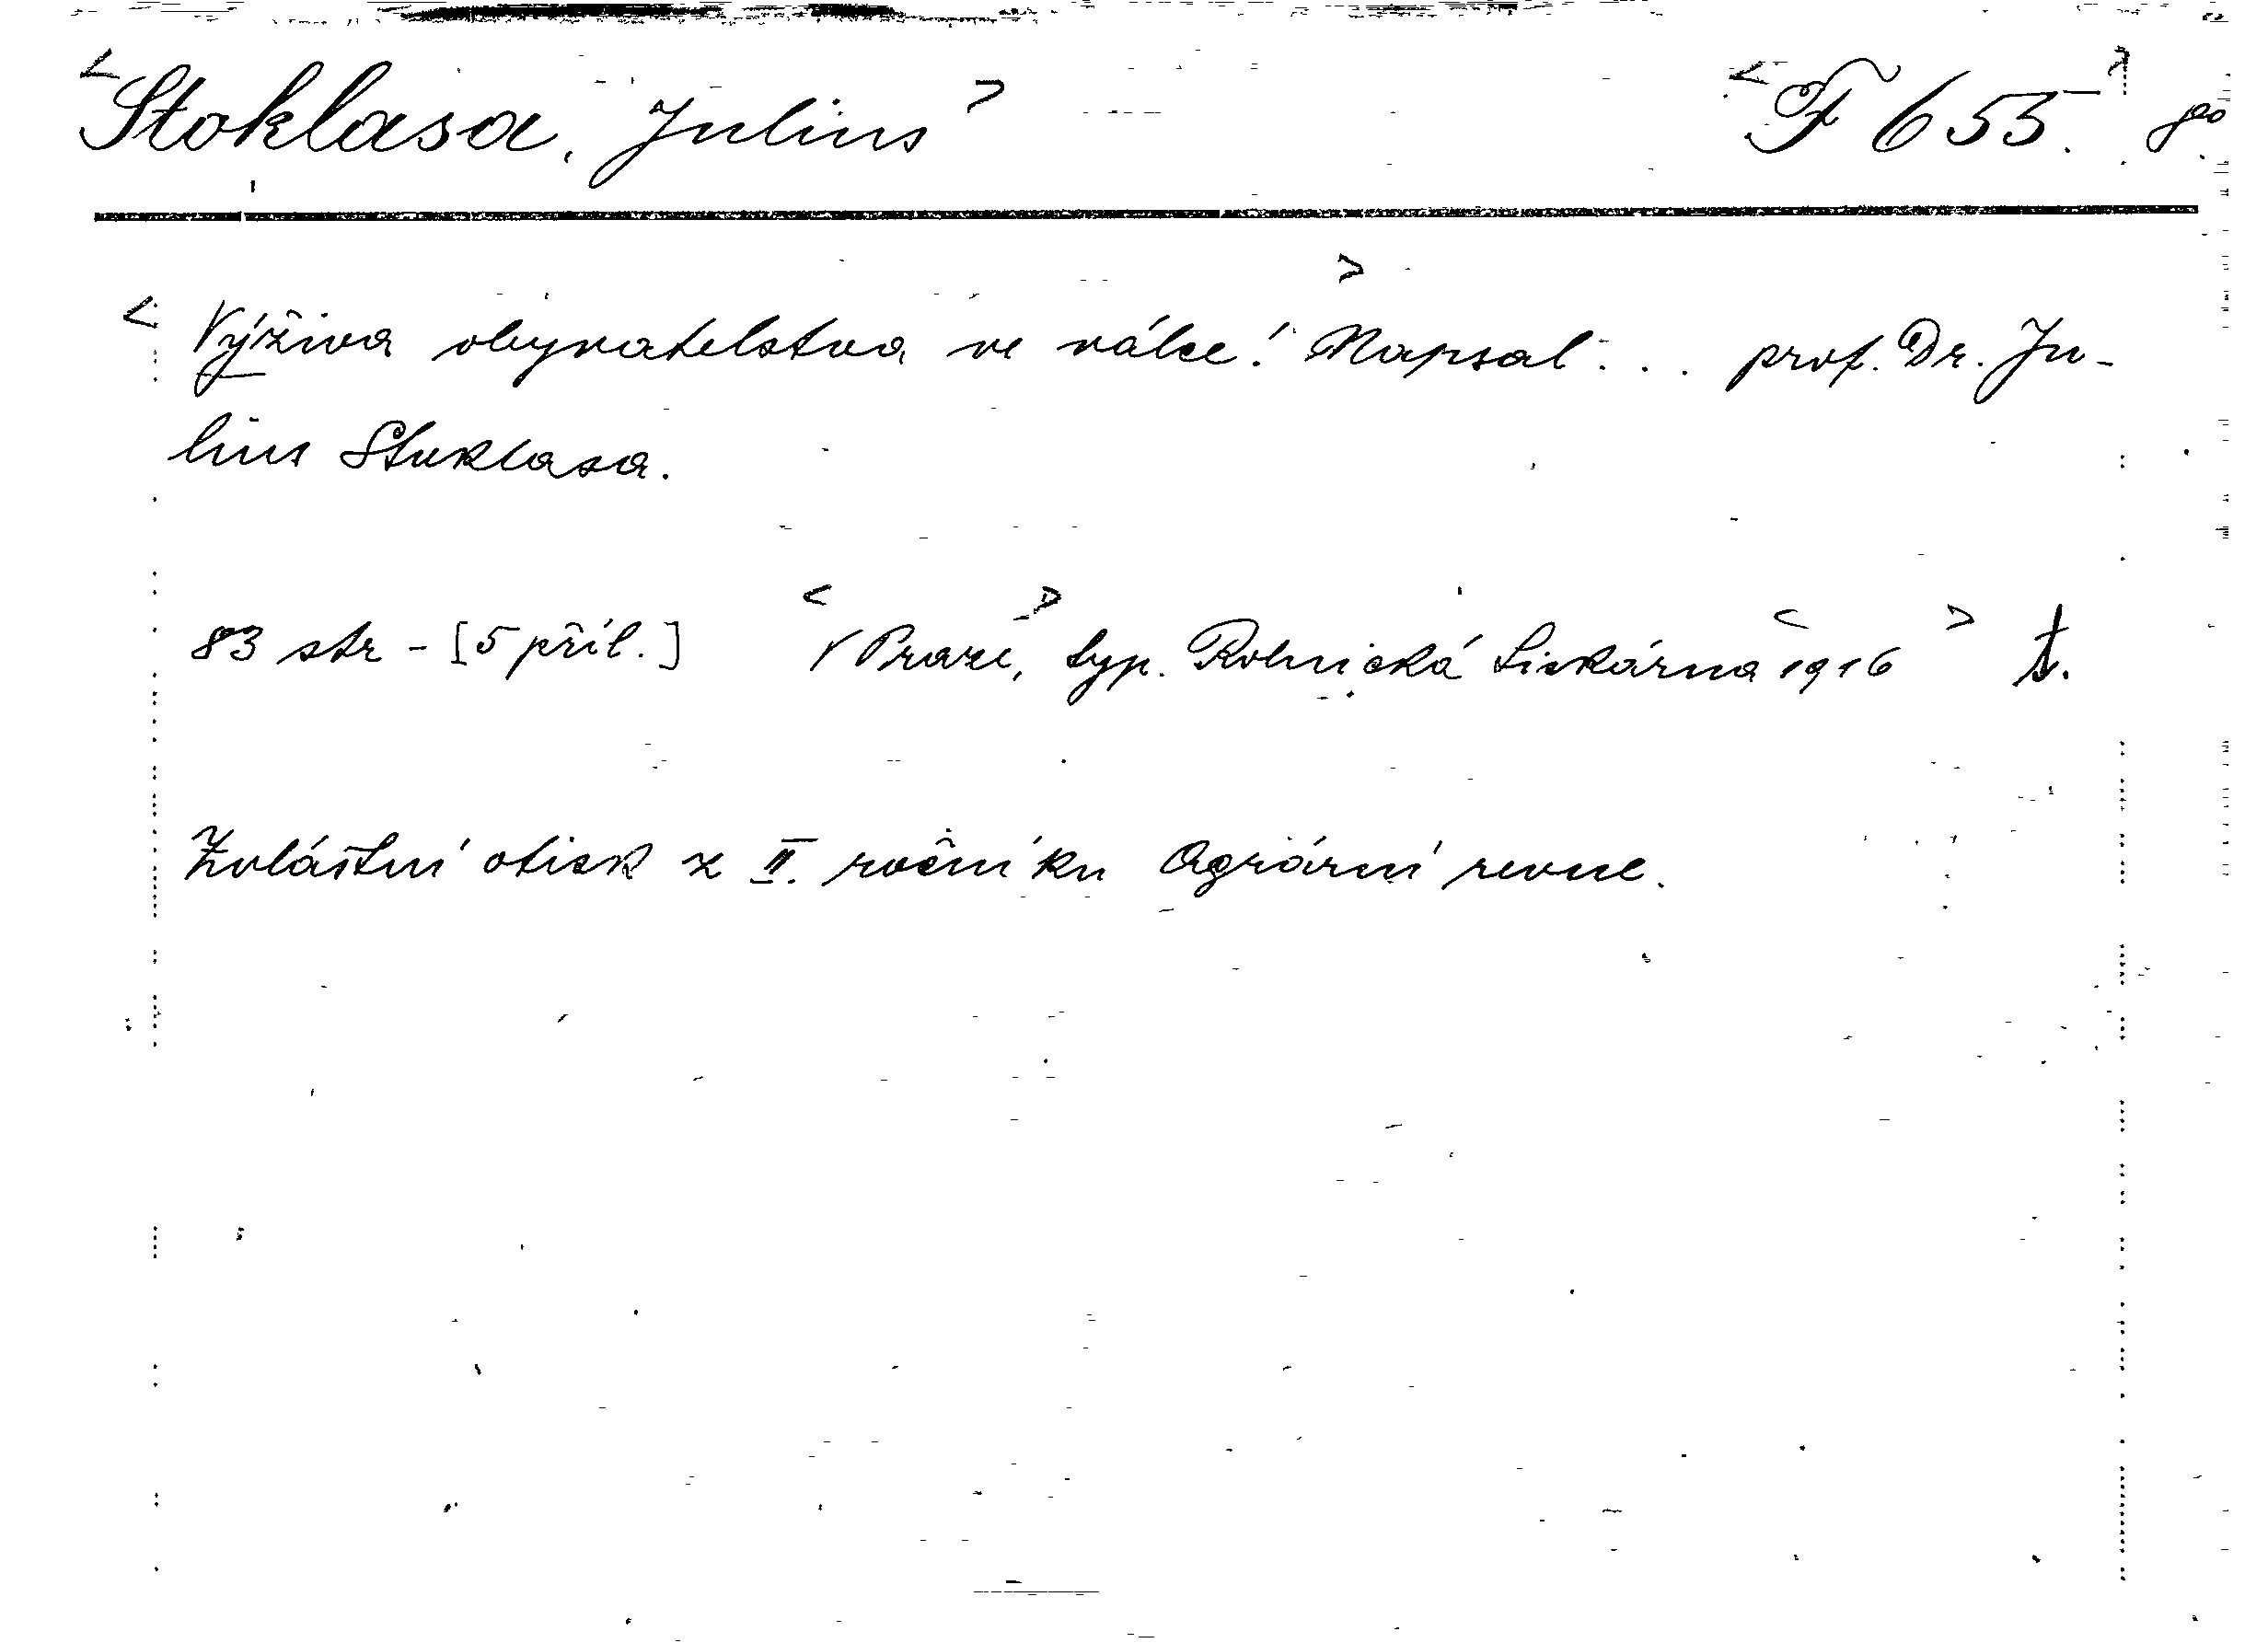 <Stoklasa, Julius> <F 655.> 8º
<Výživa obyvatelstva ve válce!> Napsal... prof. Dr. Ju-
lius Stoklasa.
83 str - [5 příl.] <V Praze,> typ. Rolnická tiskárna <1916> t.
Zvláštní otisk z II. ročníku Agrární revue.